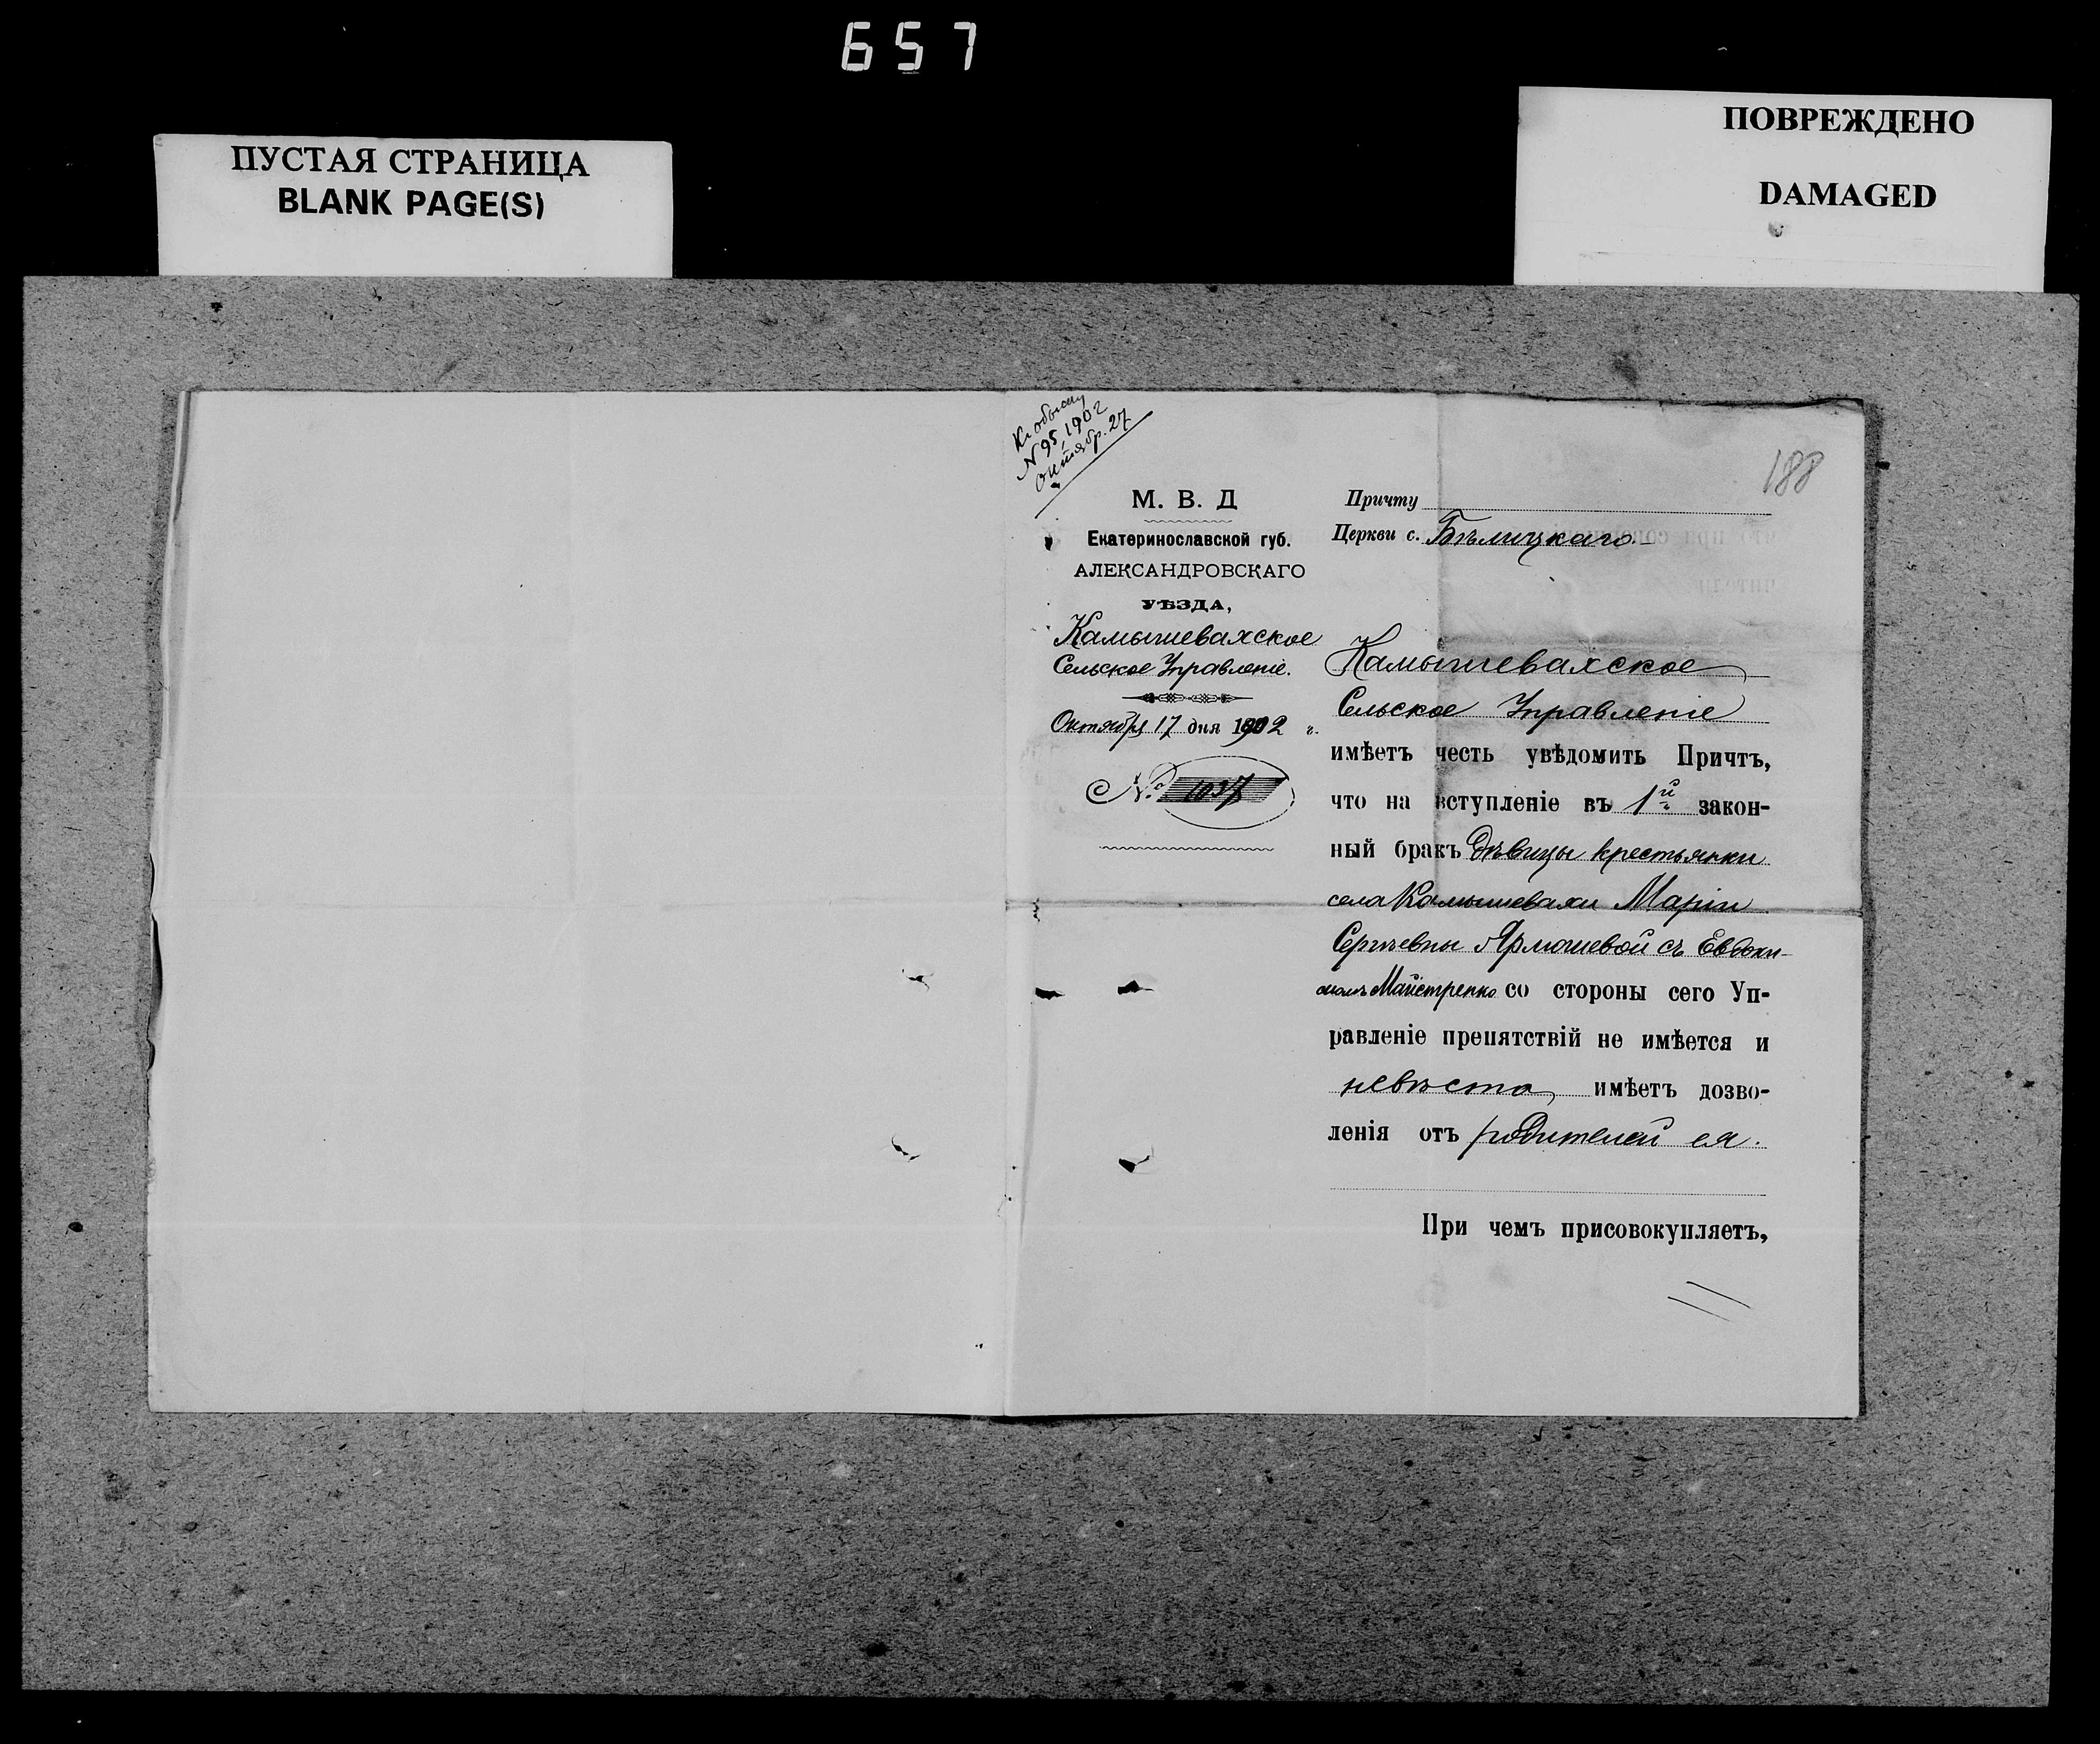 657
ПУСТАЯ СТРАНИЦА
BLANK PAGE(S)
ПОВРЕЖДЕНО
DAMAGED
Къ обыску
№ 95, 1902
октябр. 27
188
М. В. Д
Екатеринославской губ.
АЛЕКСАНДРОВСКАГО
УѢЗДА,
Камышевахское
Сельское Управленіе.
Октября 17 дня 1902 г.
№ 1037
Причту
Церкви с. Бѣлицкаго.
Камышевахское
Сельское Управленіе
имѣетъ честь увѣдомить Причтъ,
что на вступленіе въ 1й закон-
ный бракъ дѣвицы крестьянки
села Камышевахи Маріи
Сергѣевны Ярмошевой съ Евдоки-
момъ Майстренко со стороны сего Уп-
равленіе препятствій не имѣется и
невѣста имѣетъ дозво-
ленія отъ родителей ея.
При чемъ присовокупляетъ,